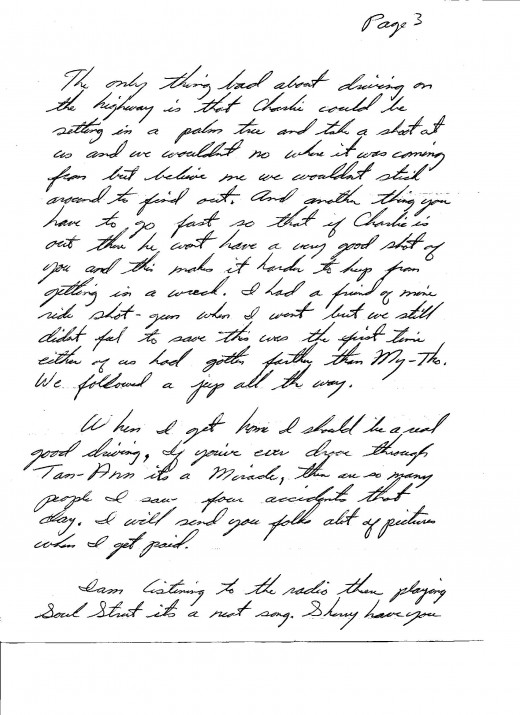 Page 3
The only thing bad about driving on
the highway is that Charlie could be
setting in a palm tree and take a shot at
us and we wouldnt no where it was coming
from but believe me we wouldnt stick
around to find out. And another thing you
have to go fast so that if Charlie is
out there he wont have a very good shot of
you and this makes it harder to keep from
getting in a wreck. I had a friend of mine
ride shot-gun when I went but we still
didnt fel to save this was the first time
either of us had gotten farther than My-Tho.
We followed a jeep all the way.
When I get home I should be a real
good driving, If you've ever drove through
Tan-Ann its a Miracle, ther are so many
people I saw four accidents that
day. I will send you folks alot of pictures
when I get paid.
I am listening to the radio there playing
Soul Strut its a neat song. Sherry have you